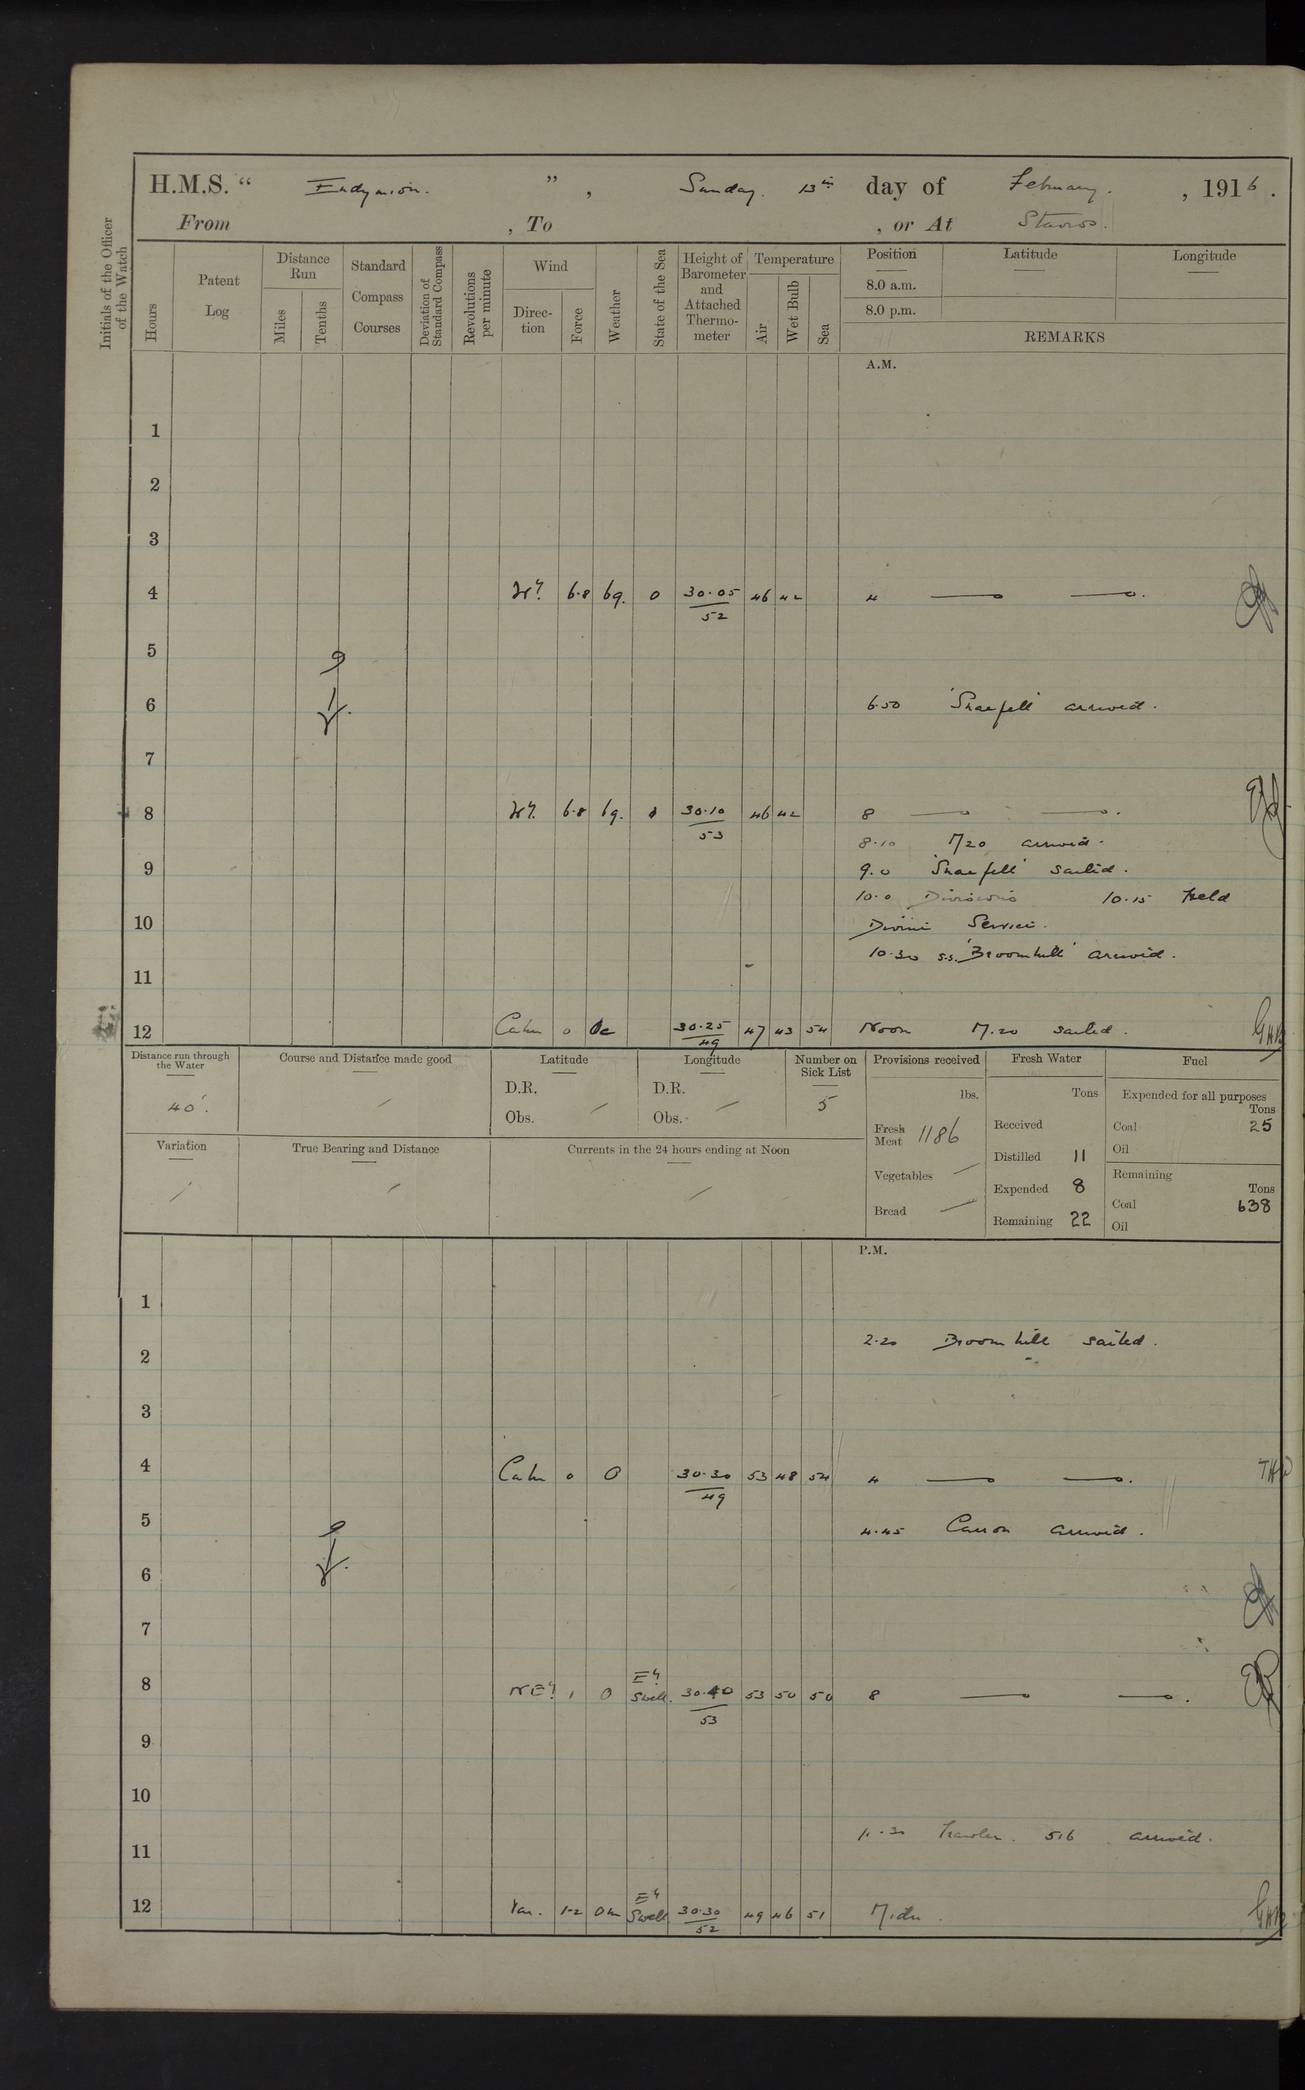 H.M.S. “ Endymion. ” , Sunday. 13th day of February. , 1916 .
From , To , or At Stavros.
Initials of the Officer of the Watch
Hours
Patent Log
Distance Run
Miles
Tenths
Standard Compass Courses
Deviation of Standard Compass
Revolutions per minute
Wind
Direction
Force
Weather
State of the Sea
Height of Barometer and Attached Thermometer
Temperature
Air
Wet Bulb
Sea
Position
Latitude
Longitude
8.0 a.m.
8.0 p.m.
REMARKS
A.M.
1
2
3
4 Wy. 6.8 bq. 0 30.05/52 46 42 4
5
6 6.50 'Snaefell' arrived.
7
8 Wy. 6.8 bq. 30.10/53 46 42 8
8.10 M20 arrived.
9 9.0 'Snaefell' sailed.
10.0 Divisions 10.15 Held
10 Divine Service.
10.30 s.s. 'Broomhill' arrived.
11
12 Calm 0 30.25/49 47 43 54 Noon M.20 sailed. GHB
Distance run through the Water
40'.
Course and Distance made good
Latitude
D.R.
Obs.
Longitude
D.R.
Obs.
Number on Sick List
5
Provisions received
lbs.
Fresh Meat 1186
Vegetables
Bread
Fresh Water
Tons
Received
Distilled 11
Expended 8
Remaining 22
Fuel
Expended for all purposes
Tons
Coal 25
Oil
Remaining
Tons
Coal 638
Oil
Variation
True Bearing and Distance
Currents in the 24 hours ending at Noon
P.M.
1
2.20 Broomhill sailed.
2
3
4 Calm 0 0 30.30/49 53 48 54 4
5 4.45 Carron arrived.
6
7
8 NEy. 1 0 Ey Swell. 30.40/53 53 50 50 8
9
10
11.30 Trawler. 516 arrived.
11
12 Var. 1-2 om Ey Swell 30.30/52 49 46 51 Midn. GHB